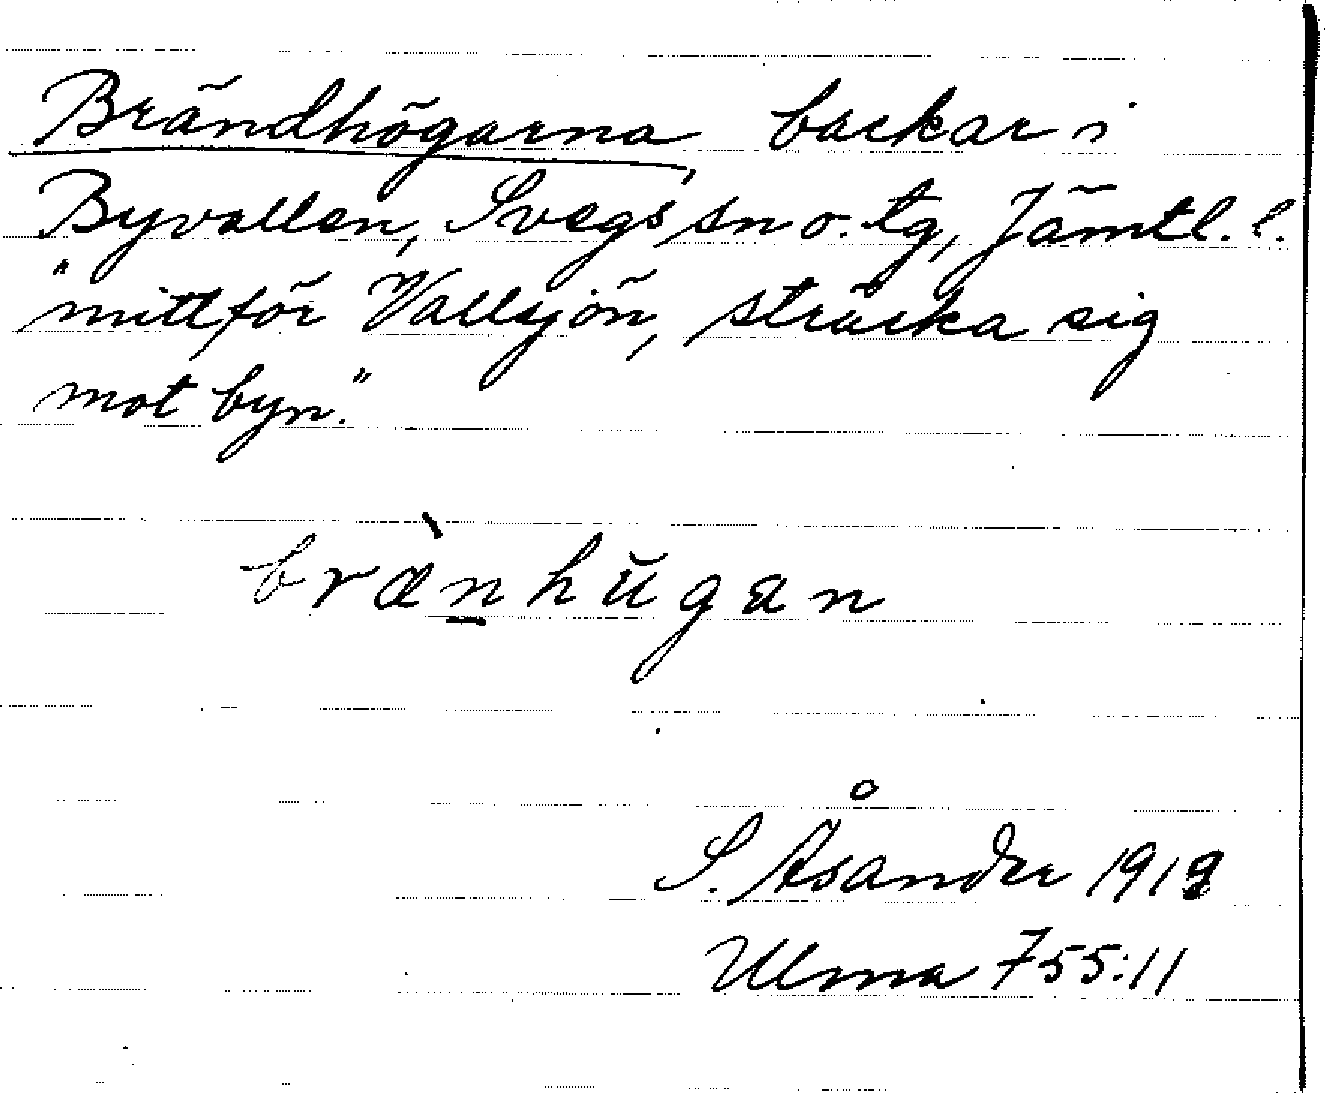 Brändhögarna, backar i
Byvallen, Svegs sn o. tg, Jämtl. l.
"mittför Vallsjön, sträcka sig
mot byn."
bræ̀n̲hŭgan
S. Åsander 1919
Ulma 755:11